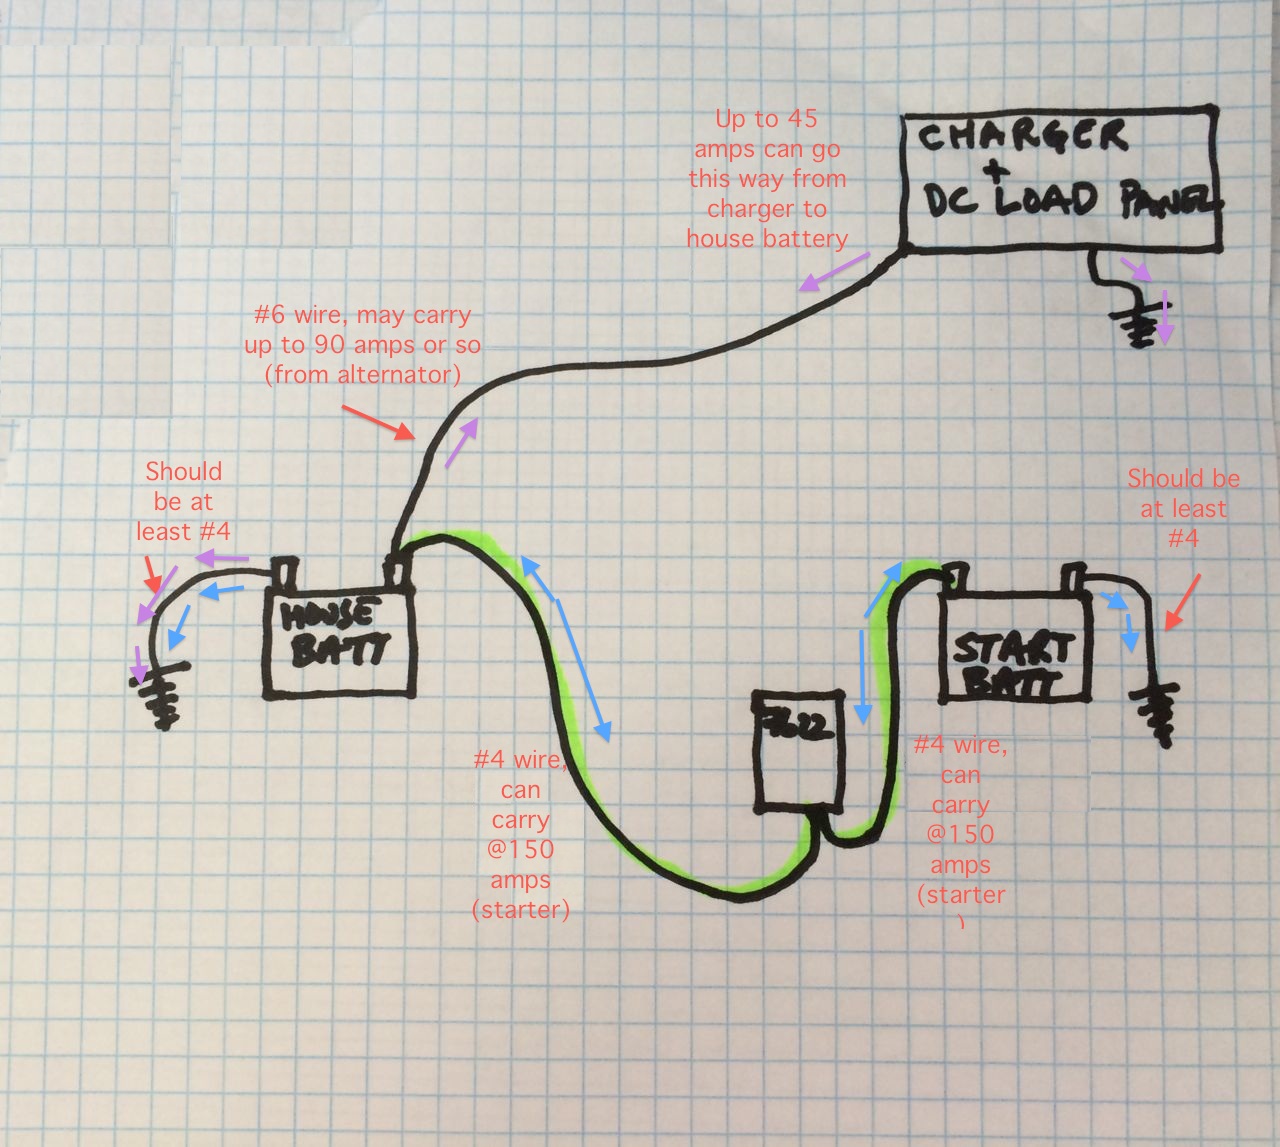 Up to 45
amps can go
this way from
charger to
house battery
CHARGER
+
DC LOAD PANEL
#6 wire, may carry
up to 90 amps or so
(from alternator)
Should
be at
least #4
Should be
at least
#4
HOUSE
BATT
START
BATT
7622
#4 wire,
can
carry
@150
amps
(starter)
#4 wire,
can
carry
@150
amps
(starter
)